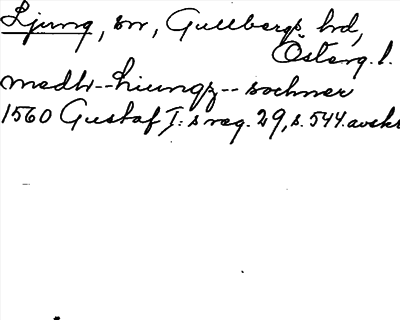 Ljung, sn, Gullbergs hd,
Österg. l.
medh--Liungz--sochner
1560 Gustaf I:s reg. 29, s. 544. avskr